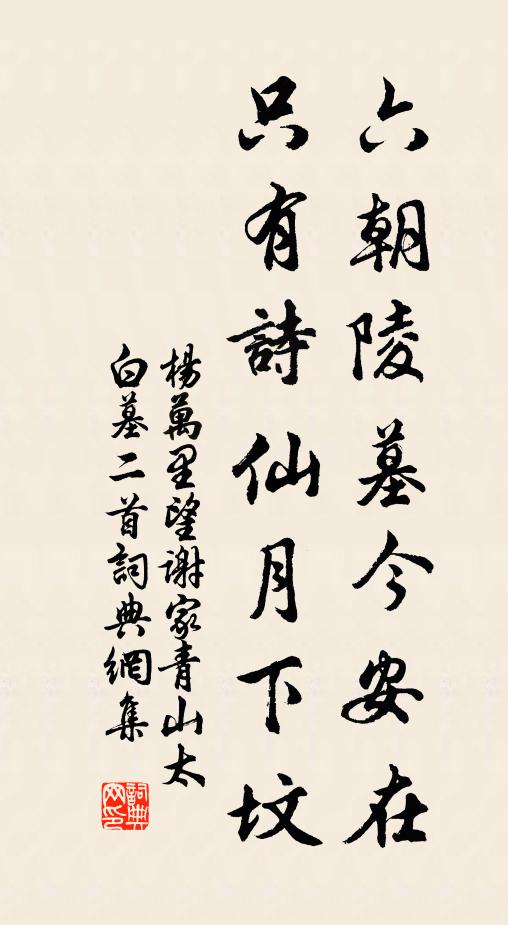 六朝陵墓今安在
只有詩仙月下坟
楊萬里望謝家青山太
白墓二首詞典網集
詞典
网印